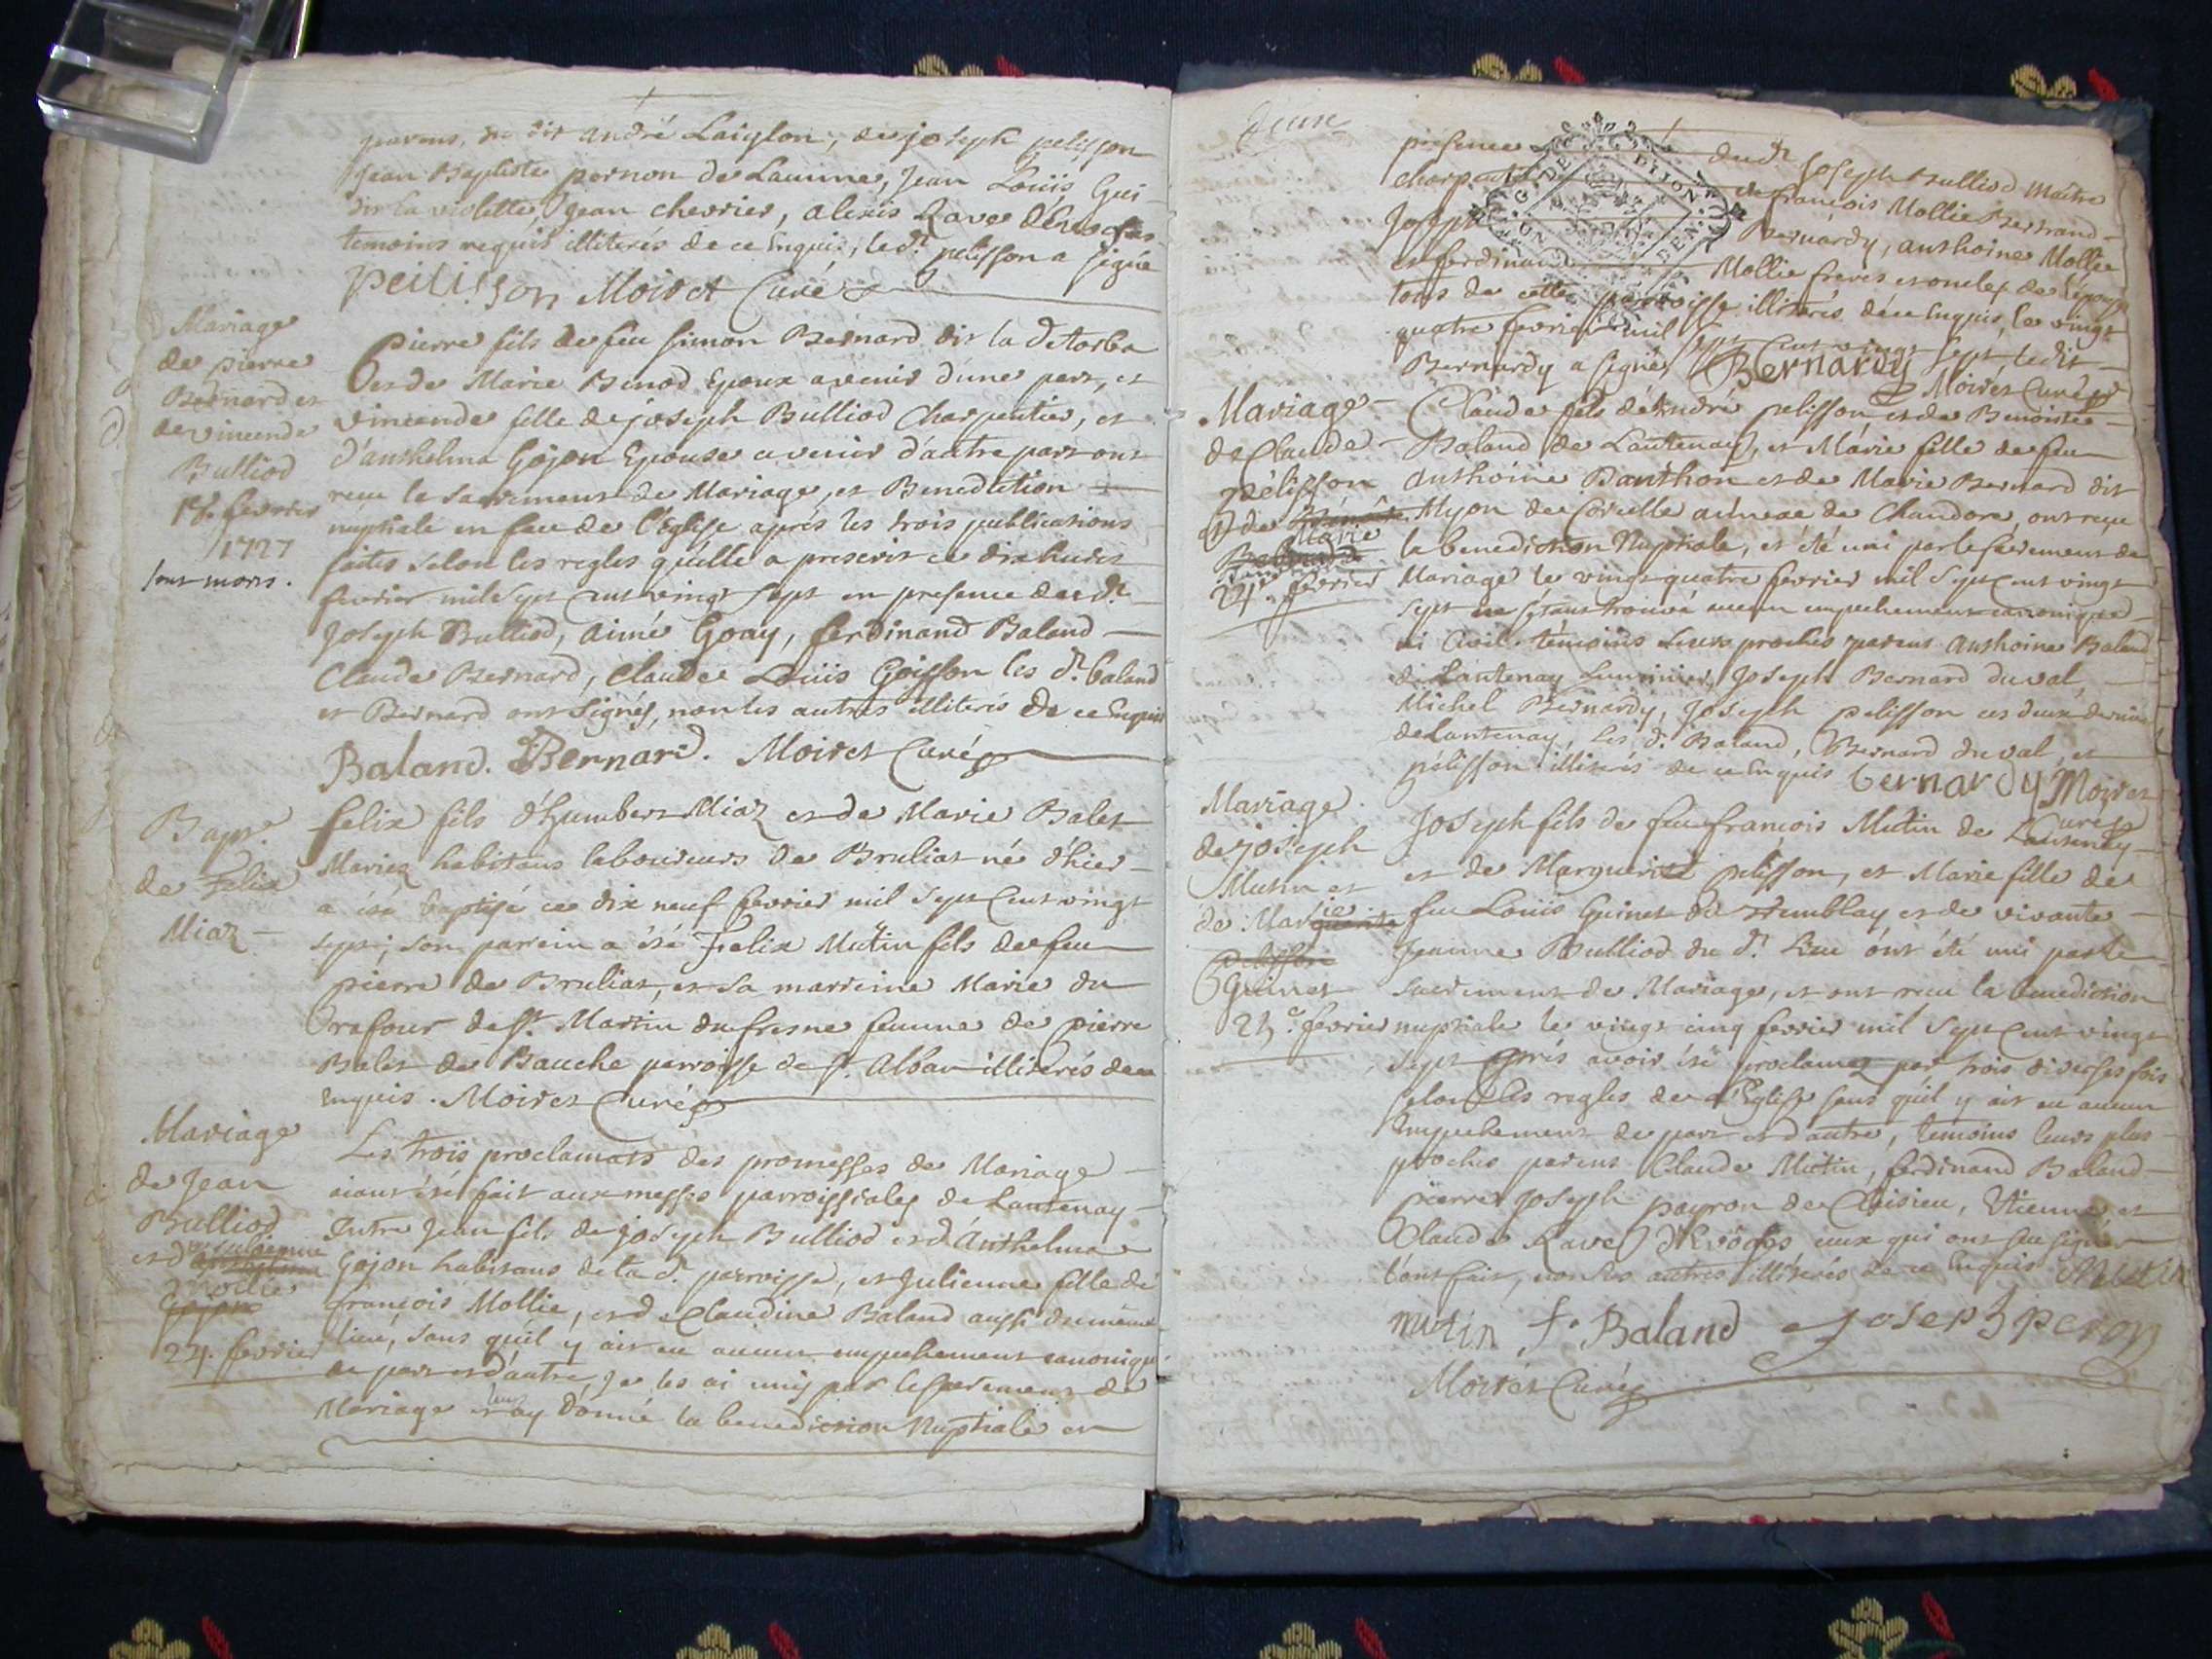 parens, du dit andré Laiglon, de joseph pelisson
Jean Baptiste pernon de Lauinne, Jean Loüis Gui-
dit la violette, Jean chevrier, alexis Ravet
temoins requis illiterés de ce Enquis, le dt. pelisson a signé
Pelisson Moiret Curé
Mariage
de pierre
Bernard et
de vincende
Bulliod
18. fevrier
1727
sont morts.
Pierre fils de feu simon Bernard dit la
et de Marie Benod Epoux avenir d'une part, et
vincende fille de joseph Bulliod Charpentier, et
d'anthelma Gojon Epouse avenir d'autre part ont
receu le sacrement de Mariage, et Benediction
nuptiale en face de l'Eglise aprés les trois publications
faites selon les regles qu'elle a prescrit ce dix huict
fevrier mil sept cent vingt sept en presence des dt.
Joseph Bulliod, aimé Goay, ferdinand Baland
Claude Bernard, Claude Loüis Goisson les dt. baland
et Bernard ont signés, non les autres illiterés de ce Enquis
Baland. Bernard. Moiret Curé
Bapt.
de Felix
Miaz
felix fils d'humbert Miaz et de Marie Balet
Mariez habitans laboureurs de Brulias né d'hier
a été baptisé ce dix neuf fevrier mil sept cent vingt
sept; son parein a été Felix Mutin fils de feu
pierre de Brulias, et sa marreine Marie du
rafour de st. Martin du fresne femme de pierre
Balet de Bauche parroisse de st. Alban illiterés de ce
enquis. Moiret Curé
Mariage
de Jean
Bulliod
et d'Julienne
Mollie
Gojon
24. fevrier
Les trois proclamats des promesses de Mariage
aiant été fait aux messes parroissiales de Lantenay
Entre Jean fils de joseph Bulliod et d'Anthelma
Gojon habitans de la dt. parroisse, et Julienne fille de
françois Mollie, et de Claudine Baland aussi du même
lieu, sans qu'il y ait eu aucun empechement canonique
de part et d'autre, Je les ai unis par le sacrement de
Mariage et leur ay donné la benediction Nuptiale en
presence du dt Joseph Bulliod maitre
charpentier de françois Mollie Bertrand
Joseph Bernardy, anthoine Mollie
et ferdinand Mollie freres et oncles de l'épouse
tous de cette parroisse illiterés de ce enquis, le vingt
quatre fevrier mil sept cent vingt sept, ledit
Bernardy a signé, Bernardy
Moiret Curé
Mariage
de Claude
Pélisson
et de Marie
24. fevrier
Claude fils d'andré pelisson et de Benoiste
Baland de Lantenay, et Marie fille de feu
anthoine Banthon et de Marie Bernard dit
Myon de Corcelle annexe de Chandore, ont reçu
la benediction Nuptiale, et été uni par le sacrement de
Mariage le vingt quatre fevrier mil sept cent vingt
sept ne s'étant trouvé aucun empechement canonique
ni Civil. témoins leurs proches parens anthoine Baland
de Lantenay, Joseph Bernard du val,
Michel Bernardy, Joseph pelisson ces deux derniers
de Lantenay, les d. Baland, Bernard du val, et
pélisson illiterés de ce enquis bernardy Moiret
curé
Mariage
de joseph
Mutin et
de Marie
pelisson
Guinet
25e. fevrier
Joseph fils de feu françois Mutin de Lantenay
et de Marguerite pelisson, et Marie fille de
feu Loüis Guinet du Tremblay et de vivante
Jeanne Bulliod du dt. Lieu ont été uni par le
sacrement de Mariage, et ont receu la benediction
nuptiale le vingt cinq fevrier mil sept cent vingt
sept aprés avoir été proclamez par trois diverses fois
selon les regles de l'Eglise sans qu'il y ait eu aucun
Empechement de part et d'autre, temoins leurs plus
proches parens Claude Mutin, ferdinand Baland
pierre Joseph payron de Cleisieu, Etienne et
Claude Ravet ceux qui ont su signer
l'ont fait, non les autres illiterés de ce Enquis Mutin
mutin f. Baland Joseph peron
Moiret Curé